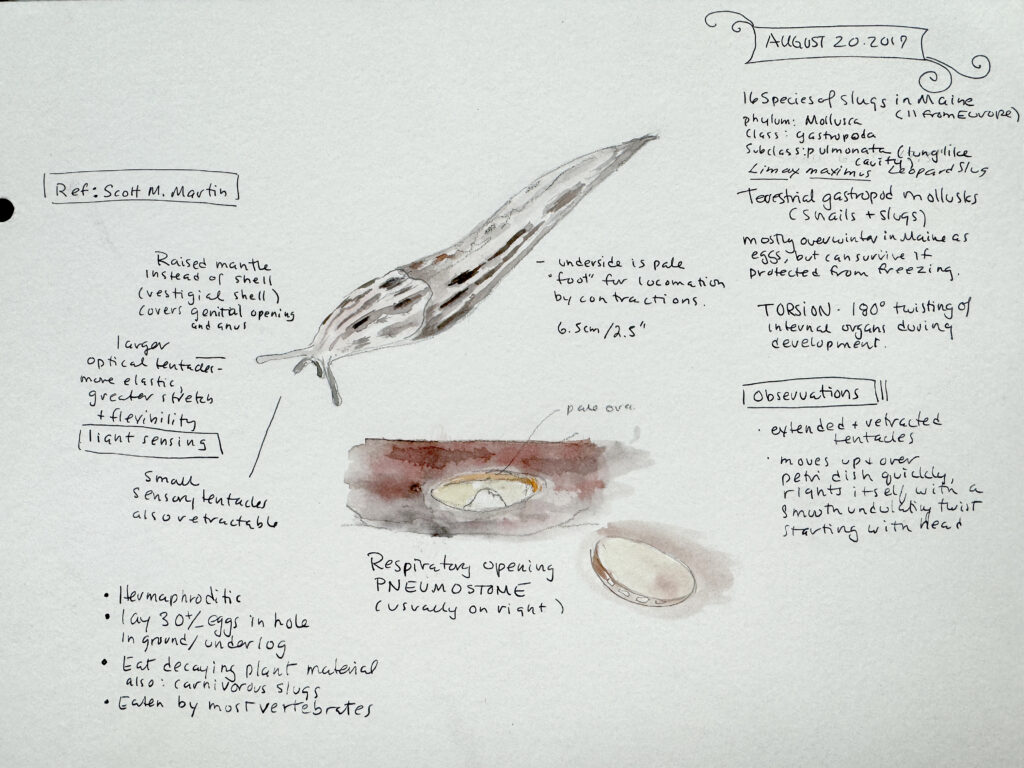 AUGUST 20.2019
16 Species of slugs in Maine
(11 from EUROPE)
phylum: Mollusca
Class: gastropoda
Subclass: pulmonata (lunglike
cavity)
Limax maximus Leopard Slug
Terrestrial gastropod mollusks
(snails + slugs)
mostly overwinter in Maine as
eggs, but can survive if
protected from freezing.
TORSION - 180° twisting of
internal organs during
development.
Observations
· extended + retracted
tentacles
· moves up + over
petri dish quickly,
rights itself, with a
smooth undulating twist
starting with head
Ref: Scott M. Martin
Raised mantle
instead of shell
(vestigial shell)
covers genital opening
and anus
larger
optical tentacles-
more elastic,
greater stretch
+ flexibility
light sensing
small
sensory tentacles
also retractable
- underside is pale
"foot" for locomation
by contractions.
6.5cm/2.5"
pale
Respiratory opening
PNEUMOSTOME
(usually on right)
• Hermaphroditic
• lay 30+/- eggs in hole
in ground/under log
• Eat decaying plant material
also: carnivorous slugs
• Eaten by most vertebrates